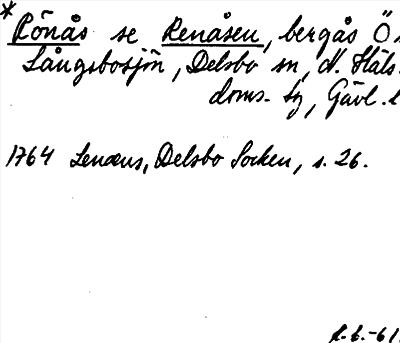 * Rönås se Renåsen, bergås Ö
Långsbosjön, Delsbo sn, N. Häls.
doms. tg, Gävl. l
1764 Lenæus, Delsbo Socken, s. 26.